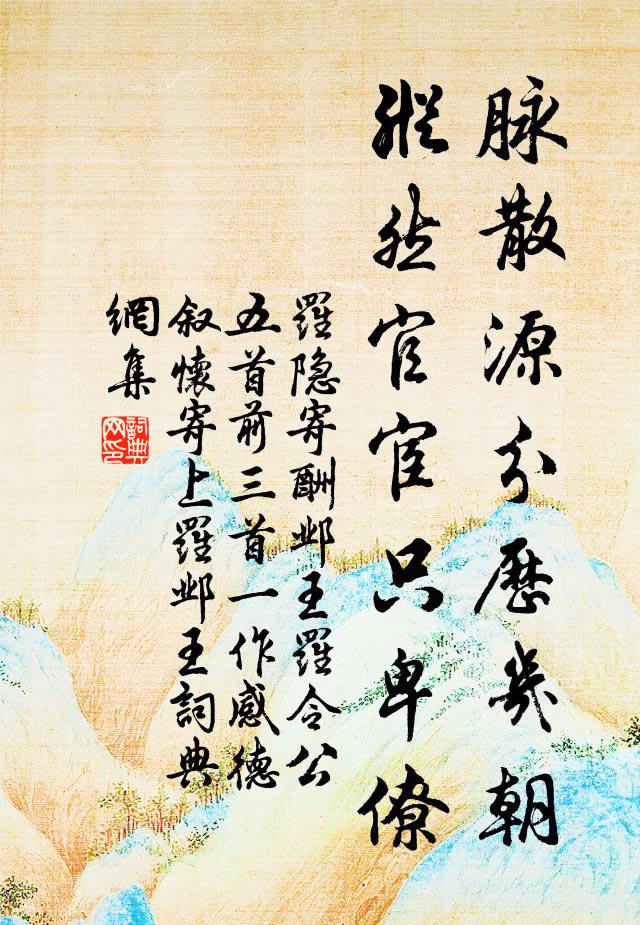 脉散源分歷幾朝
縱然官宦只卑僚
羅隐寄酬邺王羅令公
五首前三首一作感德
叙懷寄上羅邺王詞典
網集
詞典
网印